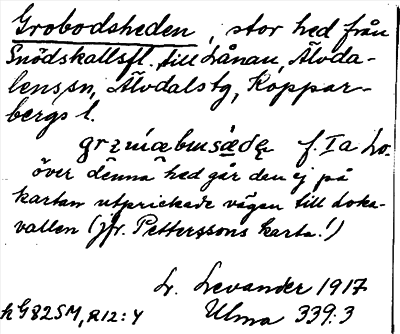 Grobodsheden, stor hed från
Snödskallsfl. till Lånan, Älvda-
lens sn, Älvdals tg, Koppar-
bergs l.
f. I a Lo.
över denna hed går den ej på
kartan utprickade vägen till Loka-
vallen (jfr. Petterssons karta!)
L. Levander 1917
h G82SM, R12:4 Ulma 339:3